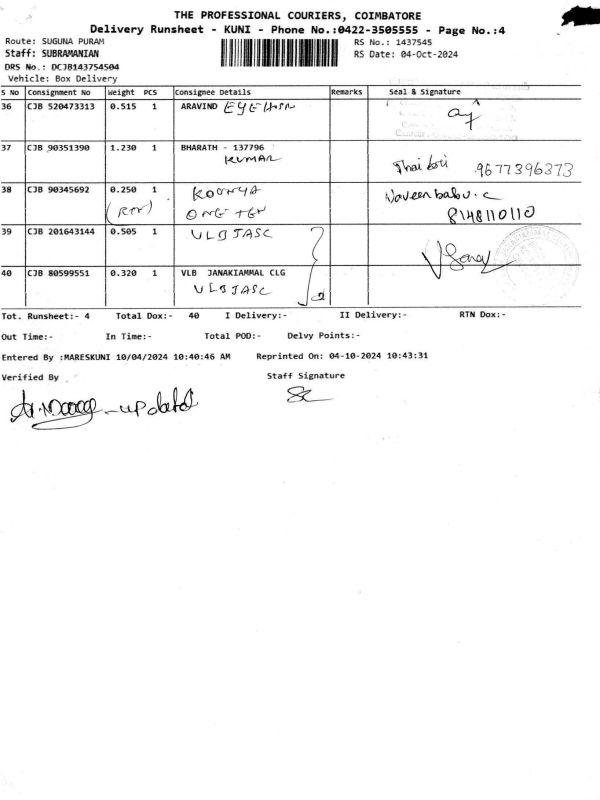 THE PROFESSIONAL COURIERS, COIMBATORE
Delivery Runsheet - KUNI - Phone No.:0422-3505555 - Page No.:4
Route: SUGUNA PURAM RS No.: 1437545
Staff: SUBRAMANIAN RS Date: 04-Oct-2024
DRS No.: DCJB143754504
Vehicle: Box Delivery
S No Consignment No Weight PCS Consignee Details Remarks Seal & Signature
36 CJB 520473313 0.515 1 ARAVIND
37 CJB 90351390 1.230 1 BHARATH - 137796
KUMAR
9677396373
38 CJB 90345692 0.250 1 Naveen babu.c
ONE TEN 8148110110
39 CJB 201643144 0.505 1 VLBJASC
40 CJB 80599551 0.320 1 VLB JANAKIAMMAL CLG
VLBJASC
Tot. Runsheet:- 4 Total Dox:- 40 I Delivery:- II Delivery:- RTN Dox:-
Out Time:- In Time:- Total POD:- Delvy Points:-
Entered By :MARESKUNI 10/04/2024 10:40:46 AM Reprinted On: 04-10-2024 10:43:31
Verified By Staff Signature
- updated